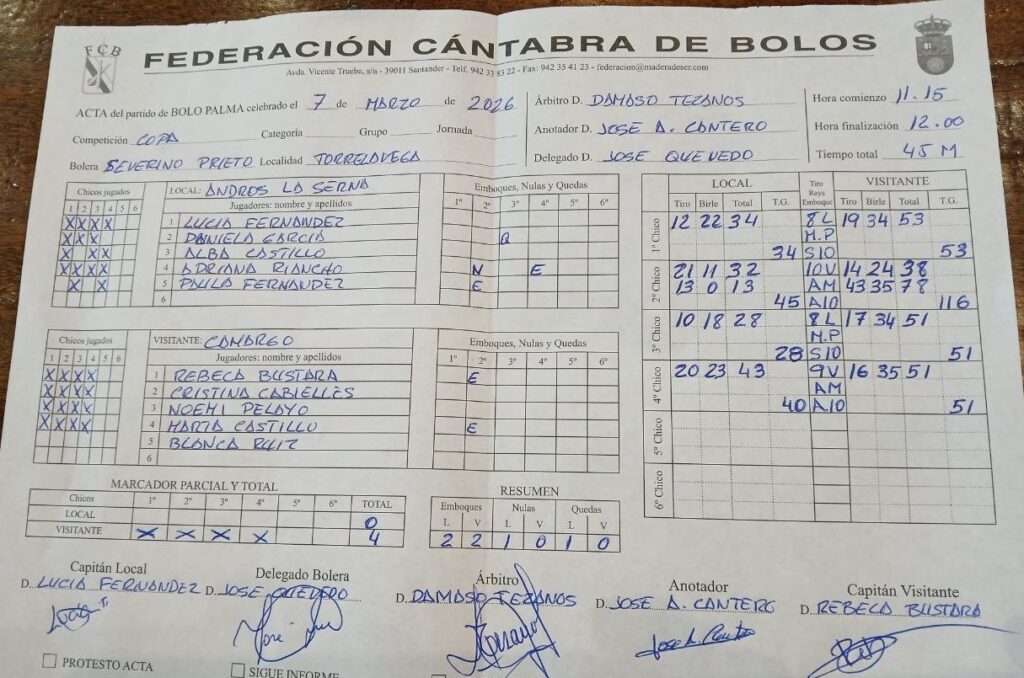 FCB
FEDERACIÓN CÁNTABRA DE BOLOS
Avda. Vicente Trueba, s/n - 39011 Santander - Telf. 942 33 83 22 - Fax: 942 35 41 23 - federacion@maderadeser.com
ACTA del partido de BOLO PALMA celebrado el 7 de MARZO de 2026
Árbitro D. DAMASO TEZANOS
Hora comienzo 11.15
Competición COPA Categoría Grupo Jornada
Anotador D. JOSE A. CANTERO
Hora finalización 12.00
Bolera SEVERINO PRIETO Localidad TORRELAVEGA
Delegado D. JOSE QUEVEDO
Tiempo total 45 M
Chicos jugados
1 2 3 4 5 6
X X X X
X X X
X X X
X X X X
X X
LOCAL: ANDROS LA SERNA
Jugadores: nombre y apellidos
1 LUCIA FERNANDEZ
2 DANIELA GARCIA
3 ALBA CASTILLO
4 ADRIANA RIANCHO
5 PAULA FERNANDEZ
6
Emboques, Nulas y Quedas
1º 2º 3º 4º 5º 6º
Q
N E
E
Chicos jugados
1 2 3 4 5 6
X X X X
X X X X
X X X X
X X X X
VISITANTE: CAMARGO
Jugadores: nombre y apellidos
1 REBECA BUSTARA
2 CRISTINA CABIELLES
3 NOEMI PELAYO
4 MARTA CASTILLO
5 BLANCA RUIZ
6
Emboques, Nulas y Quedas
1º 2º 3º 4º 5º 6º
E
E
LOCAL Tiro Raya Emboque VISITANTE
Tiro Birle Total T.G. Tiro Birle Total T.G.
1º Chico 12 22 34 8L 19 34 53
M.P
34 S10 53
2º Chico 21 11 32 10V 14 24 38
13 0 13 AM 43 35 78
45 A10 116
3º Chico 10 18 28 8L 17 34 51
M.P
28 S10 51
4º Chico 20 23 43 9V 16 35 51
AM
40 A10 51
5º Chico
6º Chico
MARCADOR PARCIAL Y TOTAL
Chicos 1º 2º 3º 4º 5º 6º TOTAL
LOCAL 0
VISITANTE X X X X 4
RESUMEN
Emboques Nulas Quedas
L V L V L V
2 2 1 0 1 0
Capitán Local
D. LUCIA FERNANDEZ
Delegado Bolera
D. JOSE QUEVEDO
Árbitro
D. DAMASO TEZANOS
Anotador
D. JOSE A. CANTERO
Capitán Visitante
D. REBECA BUSTARA
PROTESTO ACTA
SIGUE INFORME